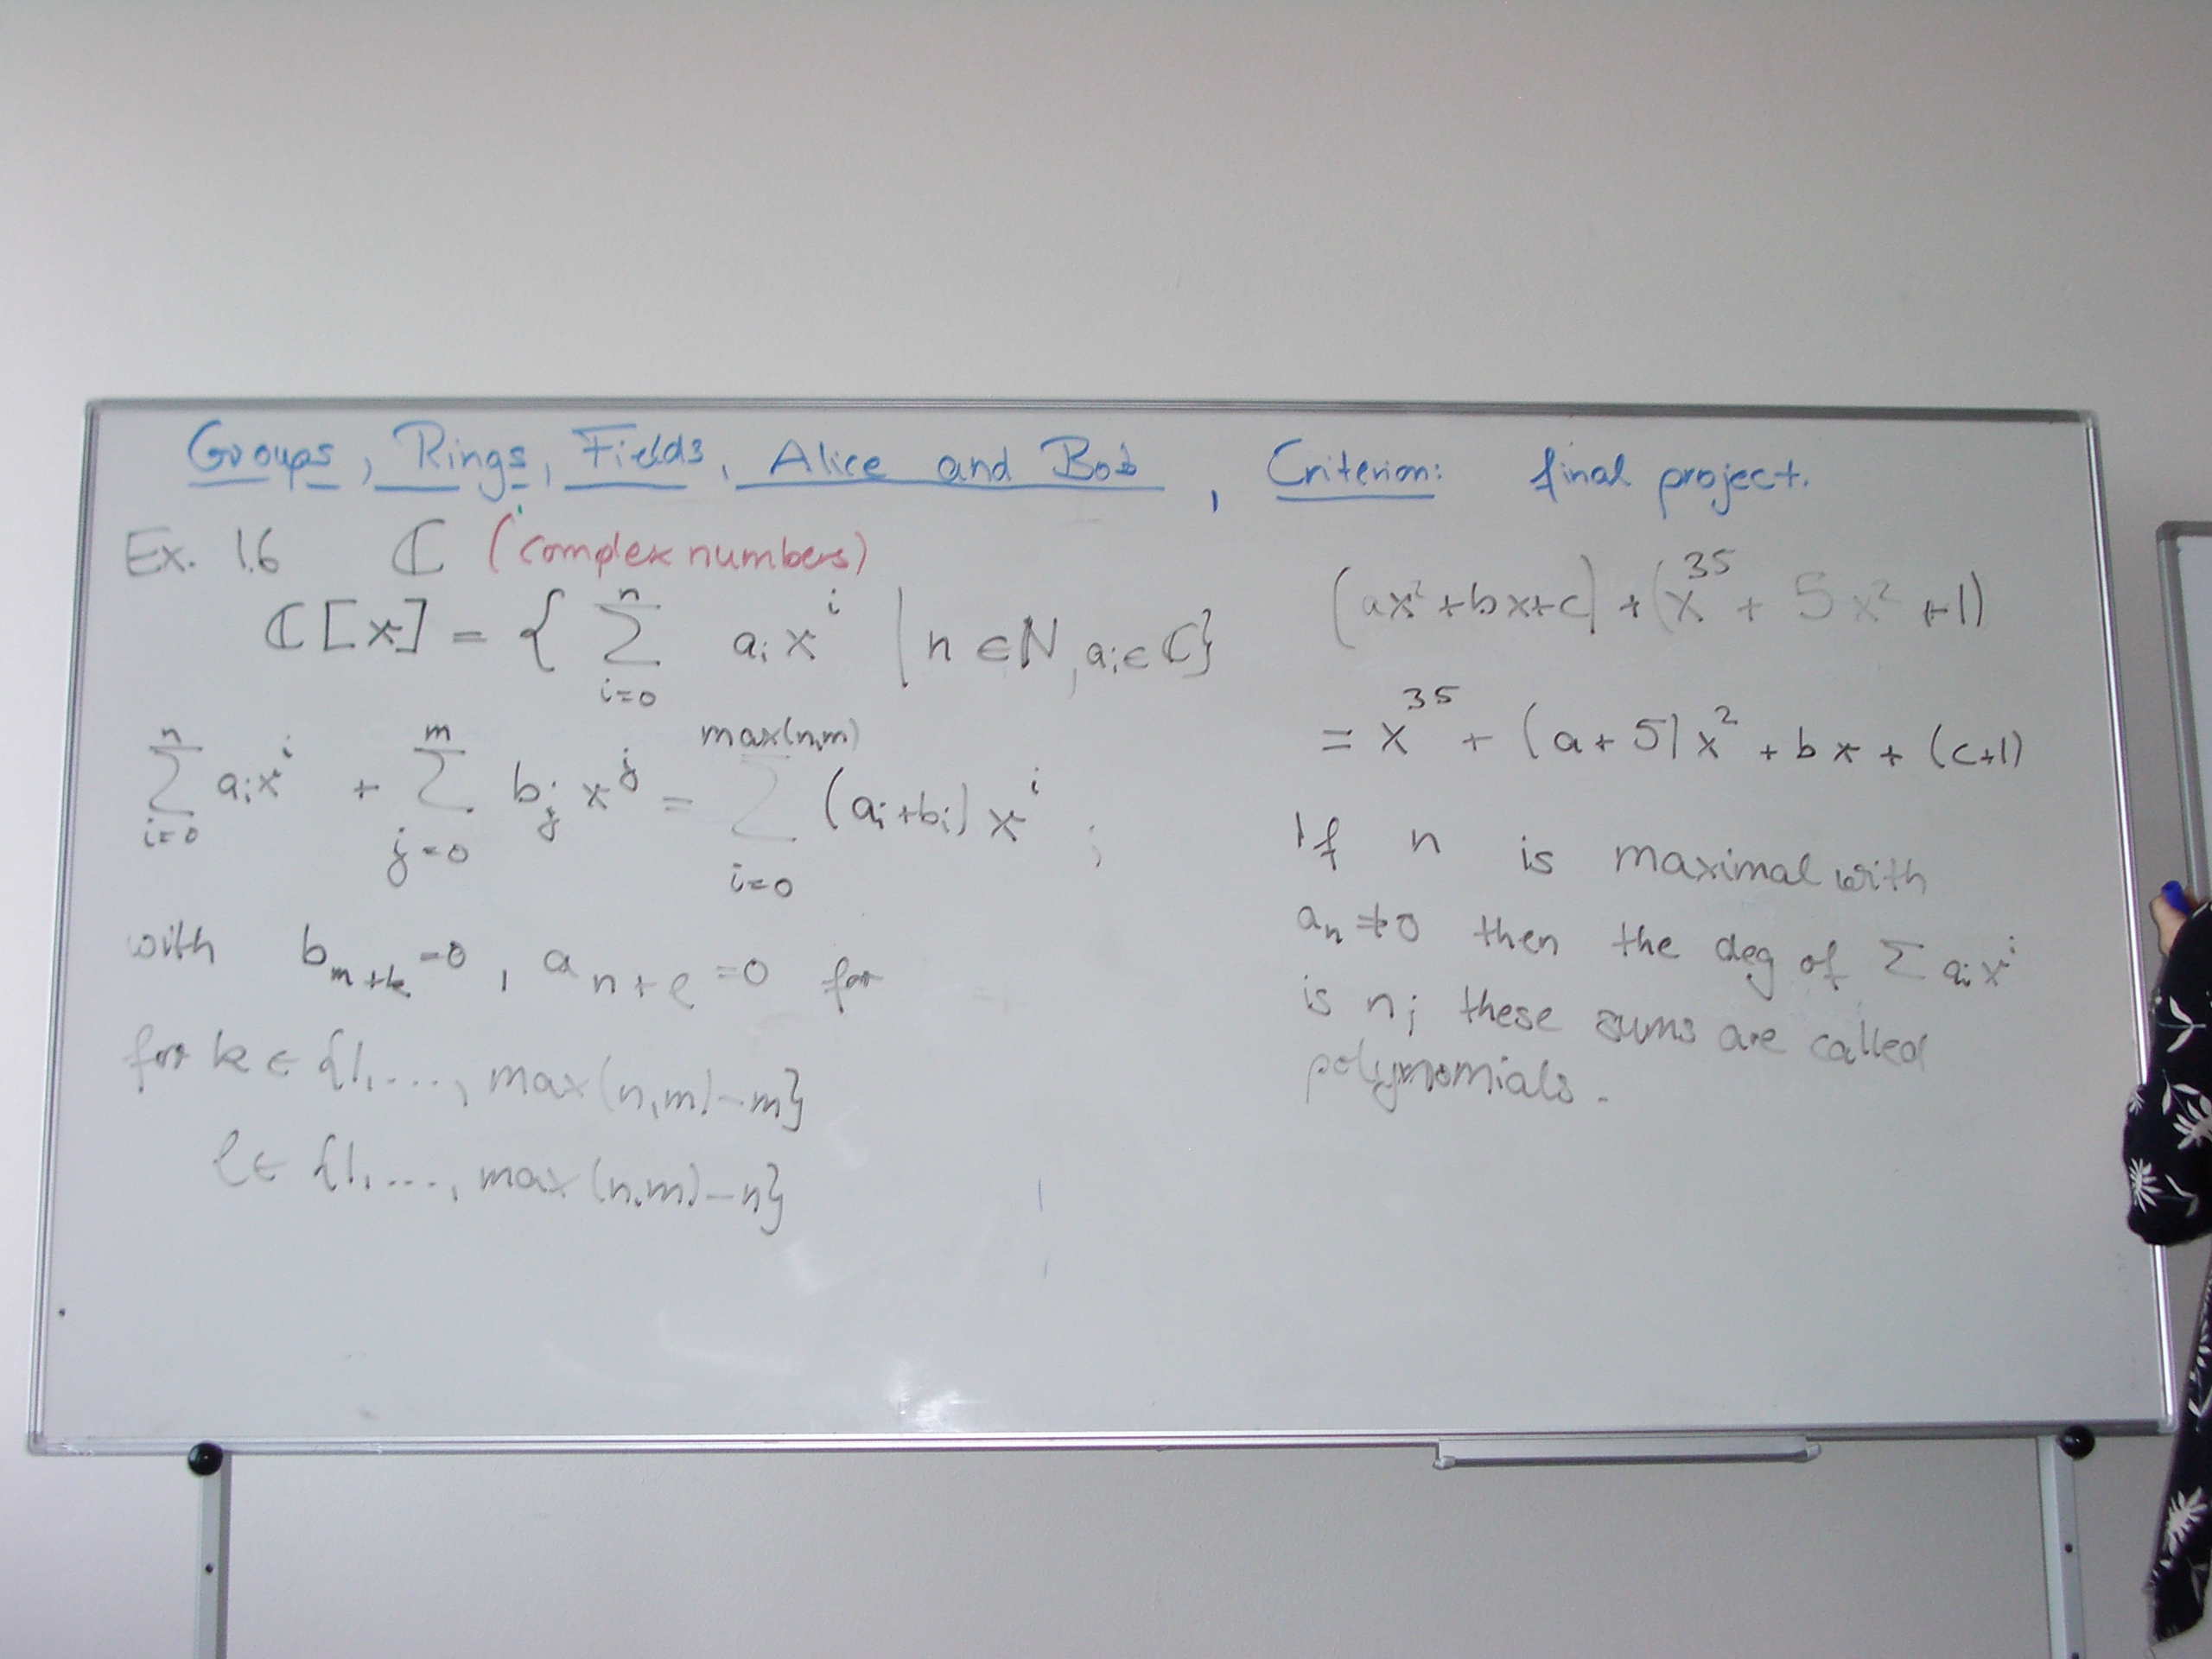 Groups, Rings, Fields, Alice and Bob, Criterion: final project.
Ex. 1.6 ℂ (complex numbers)
ℂ[x] = { ∑_{i=0}^{n} a_i x^i | n ∈ ℕ, a_i ∈ ℂ}
∑_{i=0}^{n} a_i x^i + ∑_{j=0}^{m} b_j x^j = ∑_{i=0}^{max(n,m)} (a_i + b_i) x^i ;
with b_{m+k} = 0, a_{n+ℓ} = 0 for
for k ∈ {1, ..., max(n,m) - m}
ℓ ∈ {1, ..., max(n,m) - n}
(ax² + bx + c) + (x^35 + 5x² + 1)
= x^35 + (a + 5)x² + bx + (c+1)
If n is maximal with
a_n ≠ 0 then the deg of ∑ a_i x^i
is n; these sums are called
polynomials.